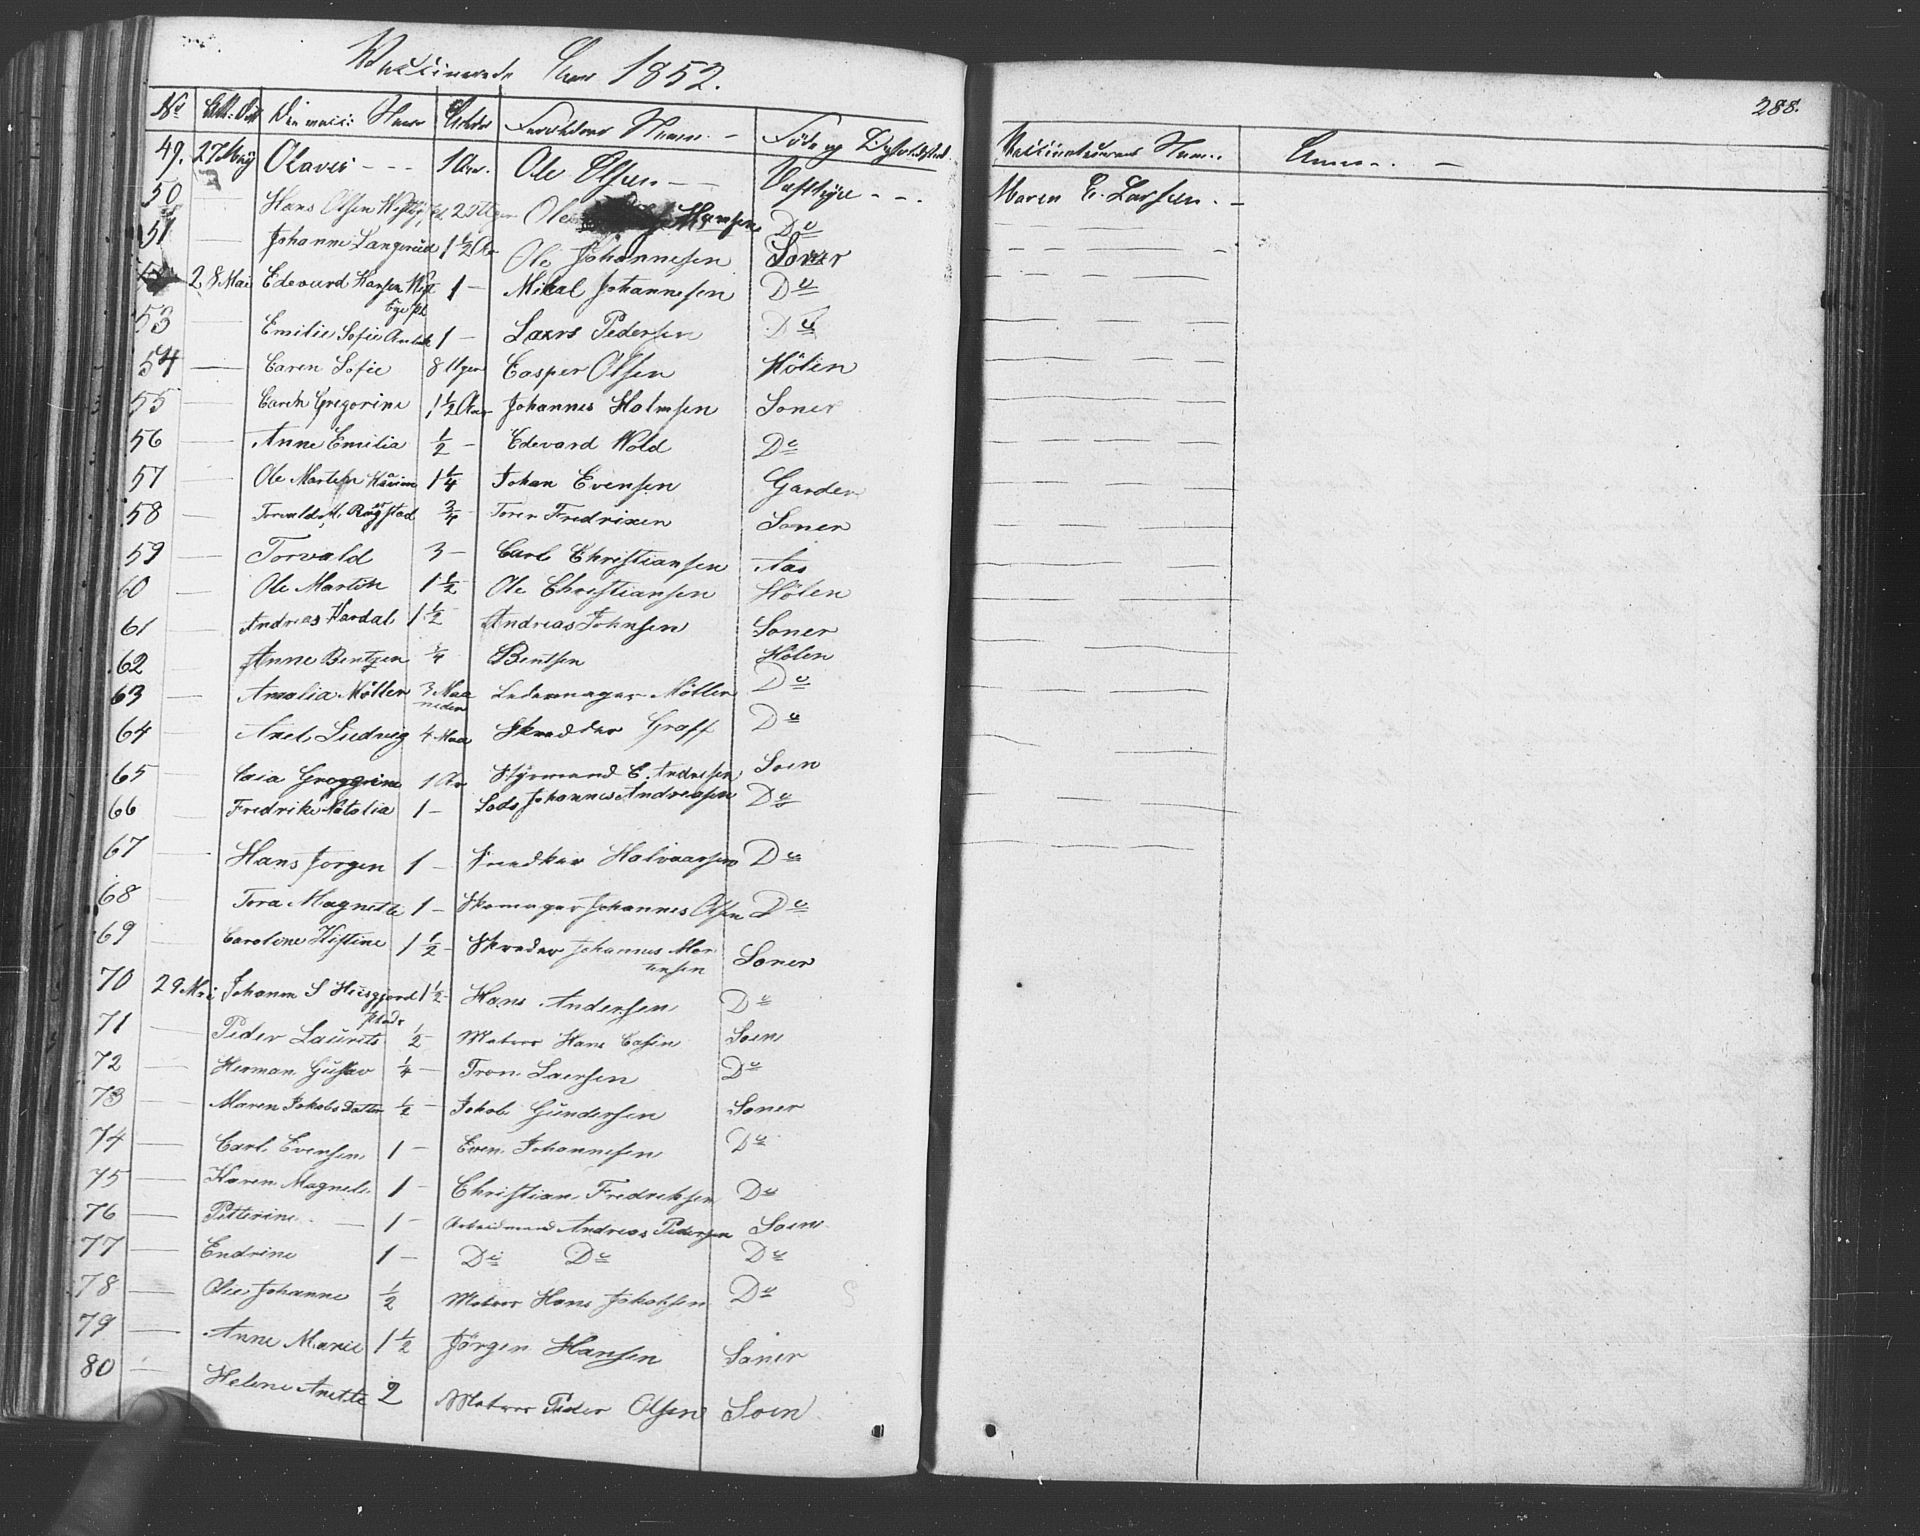 Vaccinerede Aar 1852.
288.
No Dat: Den vacci: Navn Alder Forældres Navne. Føde og Opholdssted. Vaccinateurens Navn. Anm.
49. 27 May Olaves - - - 1 Aar. Ole Olsen - Vestbye - - . Maren E. Larsen. -
50 — Hans Olsen 2 Uger Ole Hansen Do
51 — Johanne Langerud 1½ Aar Ole Johannesen Soner
28 Mai Edevard Hansen 1 - Mikal Johannesen Do
53 — Emilie Sofie 1 - Laurs Pedersen Do
54 — Caren Sofie 8 Uger Casper Olsen Hölen
55 — Caren Gregorine 1½ Aar Johannes Holmsen Soner
56 — Anne Emilia ½ - Edevard Wold Do
57 — Ole Martin 1¼ Johan Evensen Garder
58 — Torvald M. Rogstad ¾ Torer Fredrixen Soner
59 — Torvald 3 - Carl Christiansen Aas
60 — Ole Martin 1½ - Ole Christiansen Hölen
61 — Andreas Hardal 1½ - Andreas Johnsen Soner
62 — Anne Bentzen ¾ Bentsen Hölen
63 — Amalia Möller 3 Maa
neder Ledermager Möller Do
64 — Axel Ludvig 4 Maa Skredder Graff Do
65 — Caia Greggrine 1 Aar Styrmand E. Andresen Soen
66 — Fredrike Natalia 1 - Lods Johannes Andreasen Do
67 — Hans Jörgen 1 - Snedker Halvaarsen Do
68 — Tora Magnette 1 - Skomager Johannes Olsen Do
69 — Caroline Kistine 1½ - Skreder Johannes Mor
tensen Soner
70 29 Mai Johanne S 1½ - Hans Andersen Do
71 — Peder Laurits ½ - Matros Hans Do Soen
72 — Herman Gustav ¼ - Tron Laersen Do
73 — Maren Jakobs Datter ½ - Jakob Gundersen Soner
74 — Carl Evensen 1 - Even Johannesen Do
75 — Karen Magnede 1 - Christian Fredriksen Do
76 — Petterine - 1 - Arbeidmand Andreas Pedersen Soen
77 — Endrine 1 - Do Do Do
78 — Olee Johanne ½ Matros Hans Jakobsen Do
79 — Anne Marie 1½ Jörgen Hansen Soner
80 — Helene Anette 2 Matros Peder Olsen Soen